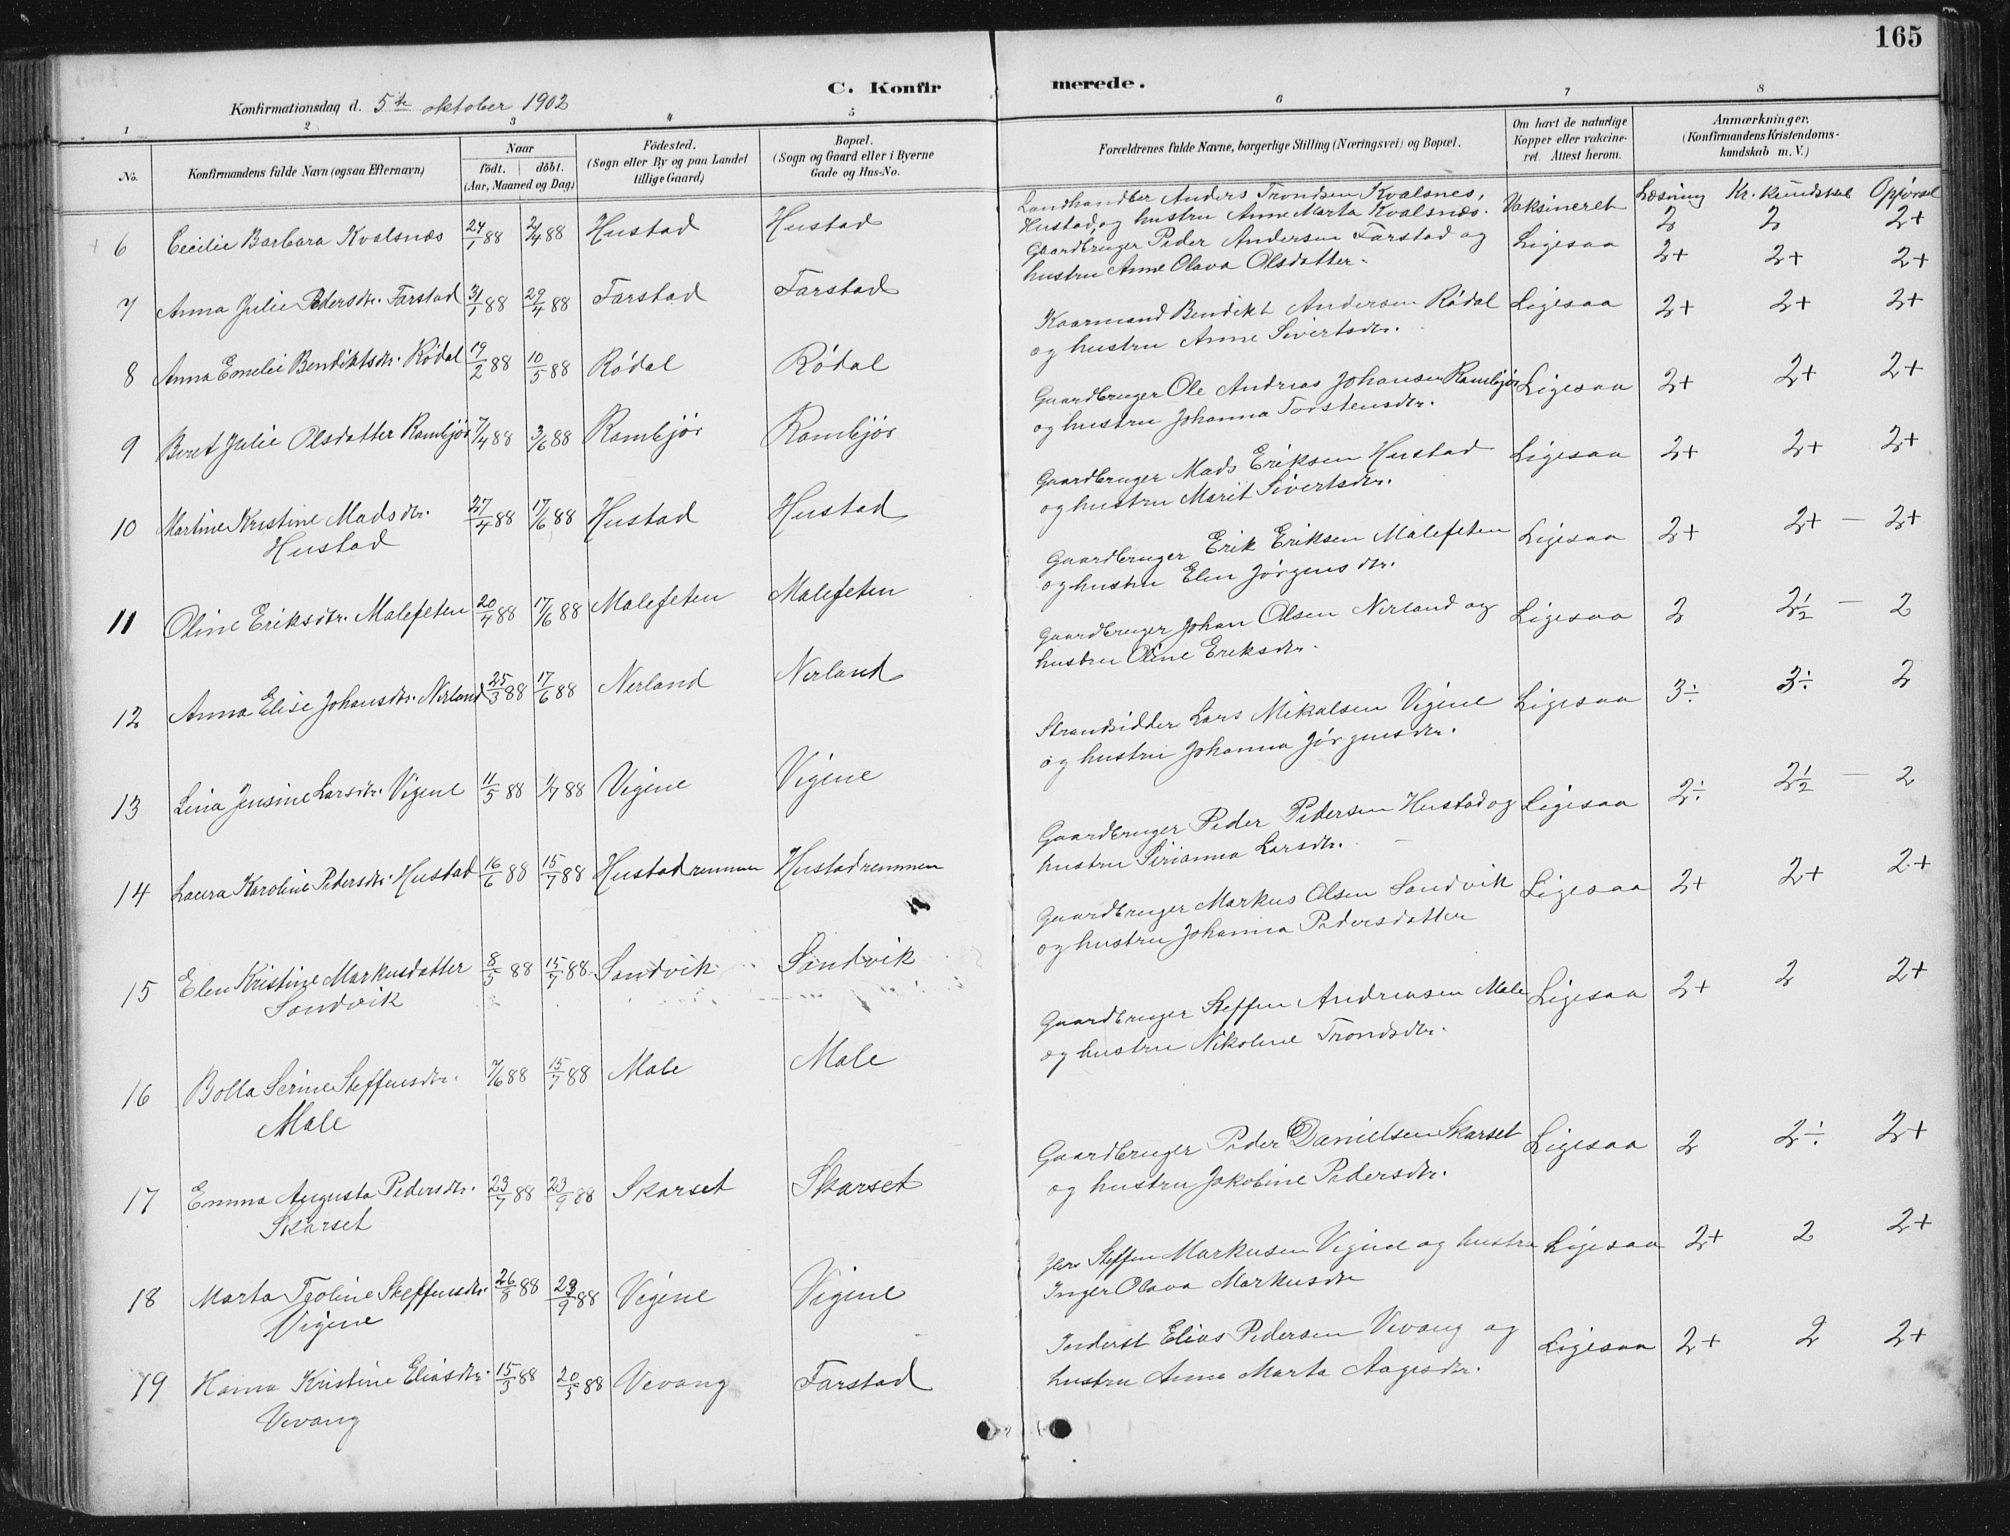 165
C. Konfirmerede.
Konfirmationsdag d. 5te oktober 1902
1 2 3 4 5 6 7 8
No. Konfirmandens fulde Navn (ogsaa Efternavn) Naar født. døbt. (Aar, Maaned og Dag) Fødested. (Sogn eller By og paa Landet tillige Gaard) Bopæl. (Sogn og Gaard eller i Byerne Gade og Hus-No. Forældrenes fulde Navne, borgerlige Stilling (Næringsvei) og Bopæl. Om havt de naturlige Kopper eller vakcineret. Attest herom. Anmærkninger. (Konfirmandens Kristendomskundskab m. V.)
Læsning Kr. kundskab Opførsel
6 Cecilie Barbara Kvalsnæs 24/1 88 2/4 88 Hustad Hustad Landhandler Anders Trondsen Kvalsnes, Vaksineret 2 2 2+
Hustad, og hustru Anne Marta Kvalsnæs.
7 Anna Julie Pedersdtr. Farstad 31/1 88 29/4 88 Farstad Farstad Gaardbruger Peder Andersen Farstad og Ligesaa 2+ 2+ 2+
hustru Anne Olava Olsdatter.
8 Anna Emelie Bendiktsdtr. Rødal 19/2 88 10/5 88 Rødal Rødal Kaarmand Bendikt Andersen Rødal Ligesaa 2+ 2+ 2+
og hustru Anne Sivertsdtr.
9 Beret Julie Olsdatter Rambjør 7/4 88 3/6 88 Rambjør Rambjør Gaardbruger Ole Andreas Johansen Rambjør Ligesaa 2+ 2+ 2+
og hustru Johanna Torstensdtr.
10 Martine Kristine Madsdtr. 27/4 88 17/6 88 Hustad Hustad Gaardbruger Mads Eriksen Hustad Ligesaa 2+ 2+ 2+
Hustad og hustru Marit Sivertsdtr.
11 Oline Eriksdtr. Malefeten 20/4 88 17/6 88 Malefeten Malefeten Gaardbruger Erik Eriksen Malefeten Ligesaa 2+ 2+ - 2+
og hustru Elen Jørgensdtr.
12 Anna Elise Johansdtr. Nerland 25/3 88 17/6 88 Nerland Nerland Gaardbruger Johan Olsen Nerland og Ligesaa 2 2½ - 2
hustru Oline Eriksdtr.
13 Lina Jensine Larsdtr. Vigene 11/5 88 1/7 88 Vigene Vigene Strandsidder Lars Mikalsen Vigene Ligesaa 3÷ 3÷ 2
og hustru Johanna Jørgensdtr.
14 Laura Karoline Pedersdtr. Hustad 16/6 88 15/7 88 Hustadremmen Hustadremmen Gaardbruger Peder Pedersen Hustad og Ligesaa 2÷ 2½ - 2
hustru Sirianna Larsdtr.
15 Elen Kristine Markusdatter 8/5 88 15/7 88 Sandvik Sandvik Gaardbruger Markus Olsen Sandvik Ligesaa 2+ 2+ 2+
Sandvik og hustru Johanna Pedersdatter
16 Bolla Serine Steffensdtr. 7/6 88 15/7 88 Male Male Gaardbruger Steffen Andreasen Male Ligesaa 2+ 2 2+
Male og hustru Nikoline Trondsdtr.
17 Emma Augusta Pedersdtr. 23/7 88 23/9 88 Skarset Skarset Gaardbruger Peder Danielsen Skarset Ligesaa 2 2÷ 2+
Skarset og hustru Jakobine Pedersdtr.
18 Marta Troline Steffensdtr. 26/8 88 23/9 88 Vigene Vigene Steffen Markusen Vigene og hustru Ligesaa 2+ 2 2+
Vigene Inger Olava Markusdtr
19 Hanna Kristine Eliasdtr. 15/3 88 20/5 88 Vevang Farstad Inderst Elias Pedersen Vevang og Ligesaa 2+ 2 2+
Vevang hustru Anna Marta Aagesdtr.